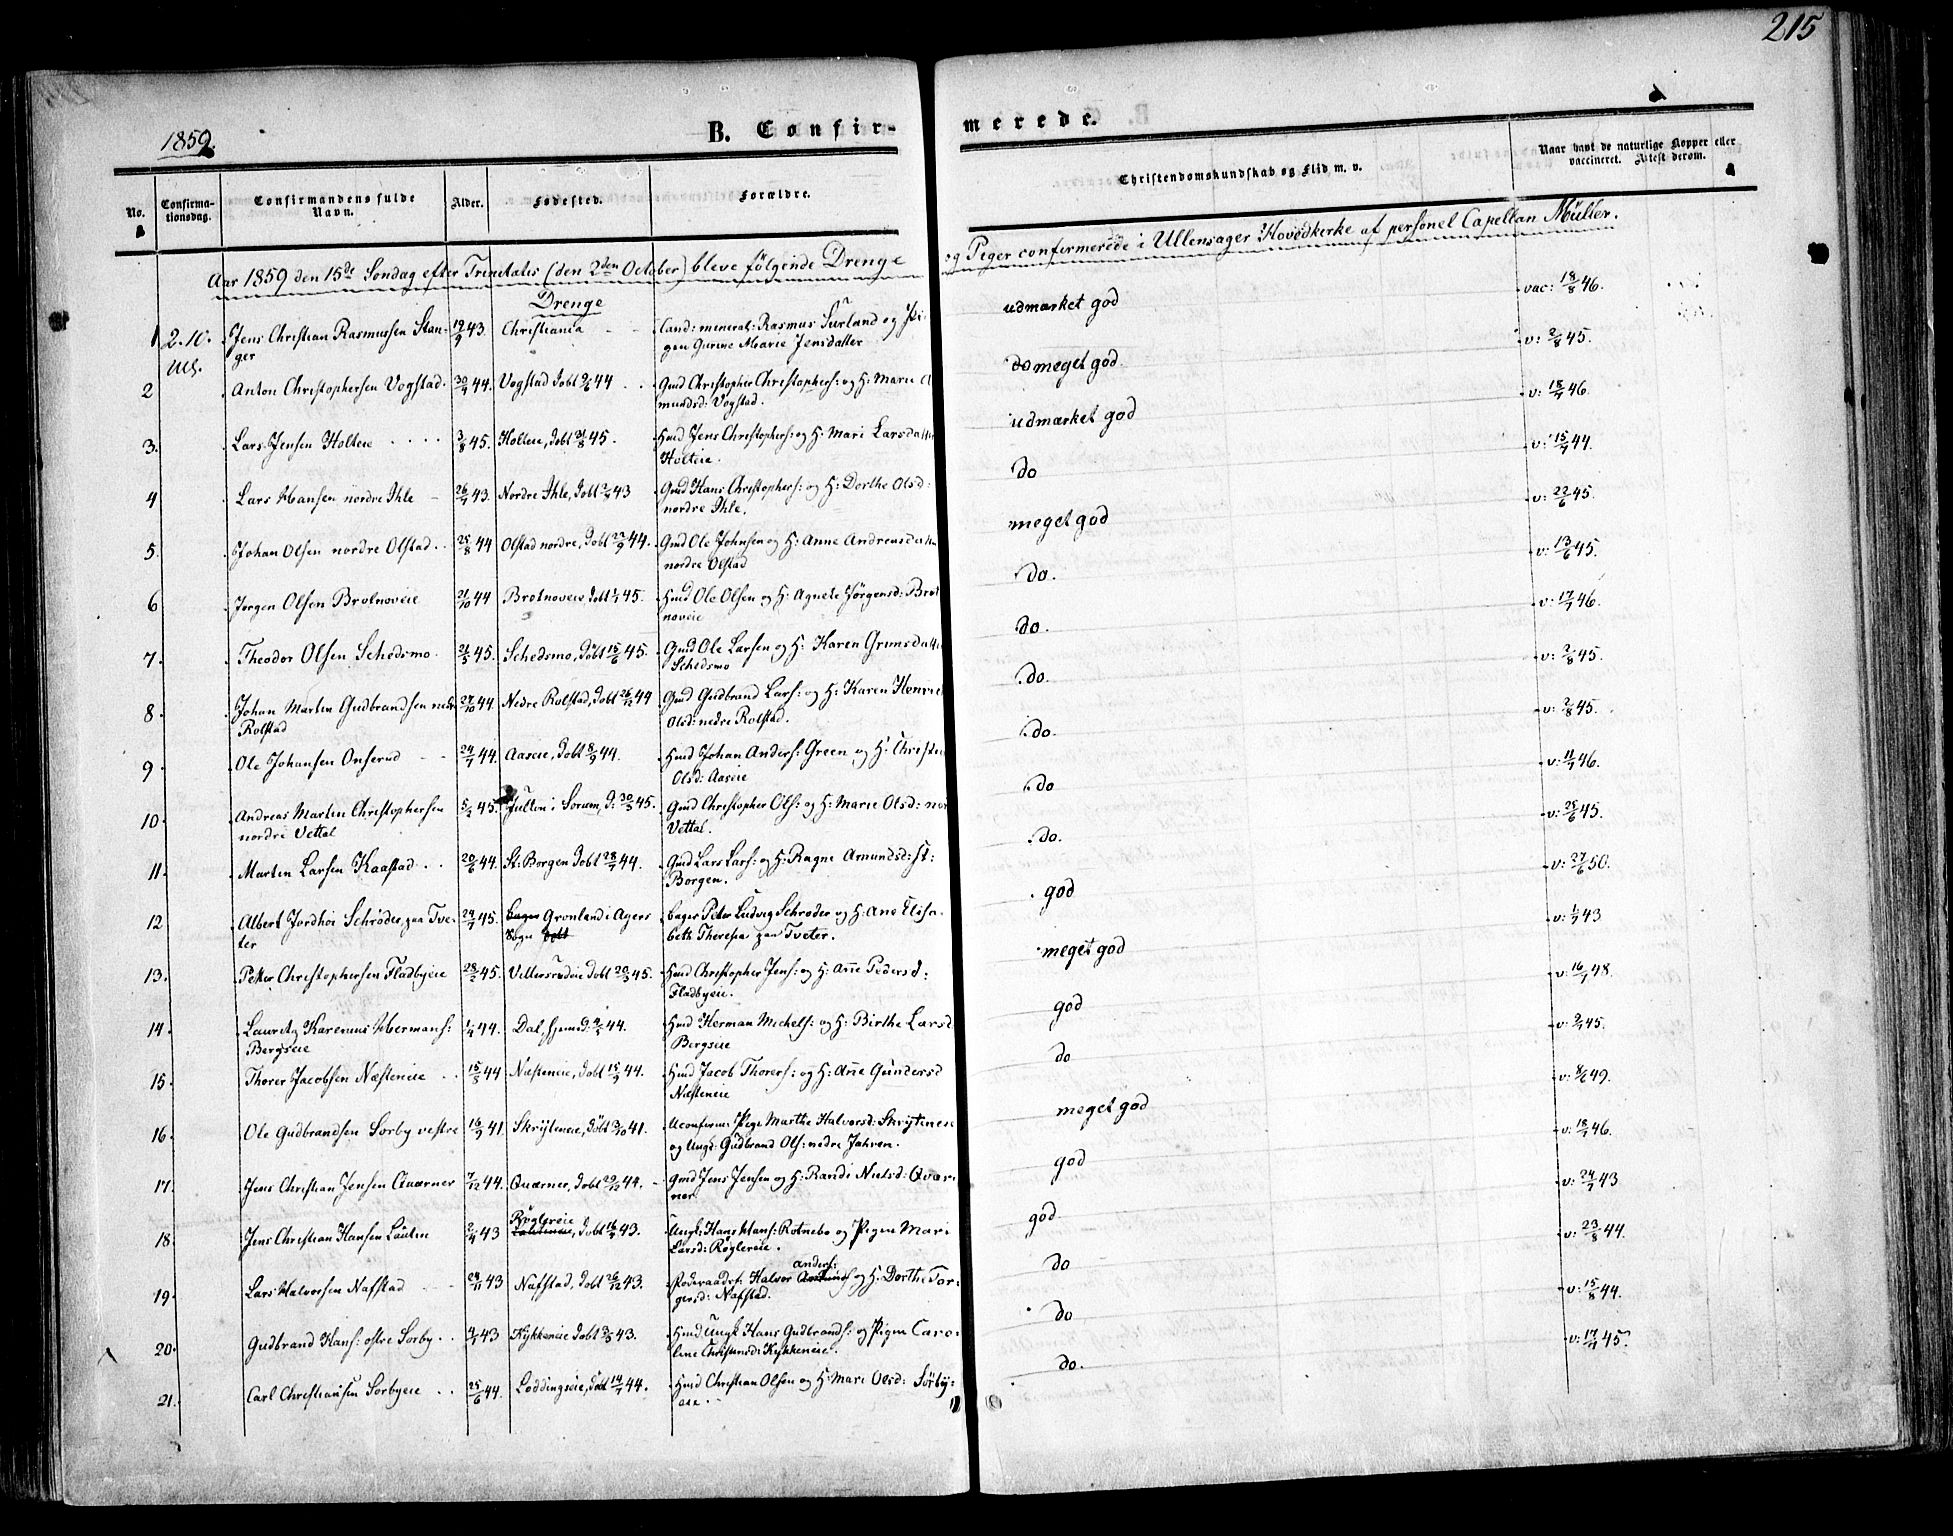 215
1859.
B. Confir-
merede.
No.
Confirma-
tionsdag.
Confirmandens fulde
Navn.
Alder.
Fødested.
Forældre.
Christendomskundskab og Flid m. v.
Naar havt de naturlige Kopper eller
vaccineret. Attest derom.
Aar 1859 den 15de Søndag efter Trinitatis (den 2den October) bleve følgende Drenge
og Piger confirmerede i Ullensager Hovedkirke af personel Capellan Müller.
Drenge
1 2.10. Jens Christian Rasmussen Stan- 19/9 43. Christiania Cand: mineral: Rasmus Surland og Pi- udmærket god vac: 18/8 46.
ger gen Gurine Marie Jensdatter
2 Anton Christophersen Vogstad. 30/4 44. Vogstad døbt 9/6 44 Gmd Christopher Christophers: og H: Marie A do meget god. v: 2/8 45.
mundsd: Vogstad.
3. Lars Jensen Holteie 3/8 45. Holteie, døbt 31/8 45. Hmd Jens Christophers: og H: Mari Larsdatter udmærket god v: 18/7 46.
Holteie.
4 Lars Hansen nordre Ihle 26/7 43. Nordre Ihle, døbt 43 Gmd Hans Christophers: og H: Dorthe Olsd: do v: 15/7 44.
nordre Ihle.
5. Johan Olsen nordre Olstad 25/8 44 Olstad nordre, døbt 22/9 44. Gmd Ole Johnsen og H: Anne Andreasdatter meget god v: 22/6 45.
nordre Olstad
6 Jørgen Olsen Brotnoveie 21/10 44 Brotnoveie døbt 1/1 45. Hmd Ole Olsen og H: Agnete Jørgensd: Brot do. v: 13/6 45.
noveie
7. Theodor Olsen Schedsmo. 21/5 45. Schedsmo, døbt 15/6 45. Gmd Ole Larsen og H: Karen Grimsdatter do. v: 17/7 46.
Schedsmo
8. Johan Martin Gudbrandsen nedre 27/10 44. Nedre Rolstad, døbt 26/12 44 Gmd Gudbrand Lars: og H: Karen Henrie do. v: 2/8 45.
Rolstad Olsd: nedre Rolstad.
9. Ole Johansen Onserud 24/7 44. Aaseie, døbt 8/9 44. Hmd Johan Anders: Green og H: Christen do. v: 2/8 45.
Olsd: Aaseie
10. Andreas Martin Christophersen 5/2 45. Julton i Sorum, d: 30/3 45. Gmd Christopher Ols: og H: Marie Olsd: nor do v: 11/7 46.
nordre Vettal Vettal.
11. Martin Larsen Kaastad 20/6 44. St: Borgen døbt 28/7 44. Gmd Lars Lars: og H: Ragne Amundsd: St: do. v: 25/6 45.
Borgen.
12 Albert Jordhoi Schrøder paa Tve- 24/7 45. Grønland i Agers Bager Peter Ludvig Schrøder og H: Ane Elisa- god v: 27/6 50.
ter Sogn beth Theresia paa Tveter.
13. Petter Christophersen Fladbyeie 23/2 45. Vettersrudeie døbt 20/3 45. Hmd Christopher Jens: og H: Anne Pedersd: meget god v: 1/7 43
Fladbyeie.
14. Lauritz Karenius Hermans: 1/4 44. Dal, 44. Hmd Herman Michels: og H: Birthe Larsd god v: 16/7 48.
Bergseie Bergseie
15. Thorer Jacobsen Næsteneie 15/8 44 Næsteneie, døbt 15/9 44. Hmd Jacob Thorers: og H: Anne Gundersd do v: 2/7 45.
Næsteneie
16. Ole Gudbrandsen Sorby vestre 16/9 41. Skrijteneie, døbt 3/10 41. Uconfirm: Pige Marthe Halvorsd: Skrijtenen meget god v: 8/6 49.
og Ungk: Gudbrand Ols: nedre Jahren.
17. Jens Christian Jensen Qværner 7/12 44. Qværner, døbt 29/12 44. Gmd Jens Jensen og H: Randi Nielsd: Qvær god v: 18/7 46.
ner
18. Jens Christian Hansen Lautin 2/4 43 Røglereie døbt 16/4 43. Ungk: Hans Hans: Rotnebo og Pigen Mari god v: 24/7 43
Larsd: Røglereie.
19. Lars Halvorsen Nafstad 28/11 43 Nafstad, døbt 26/12 43. Føderaadst: Halvor Anders: og H: Dorthe Tor- do v: 23/8 44.
gersd: Nafstad.
20. Gudbrand Hans: østre Sorby 4/2 43 Kykkeneie døbt 3/5 43. Hmd Ungk Hans Gudbrands: og Pigen Caro- do v: 15/8 44.
line Christensd: Kykkeneie.
21. Carl Christiansen Sorbyeie 25/6 44. Loddingseie, døbt 14/7 44. Hmd Christian Olsen og H: Mari Olsd: Sørby- do. v: 17/7 45.
eie